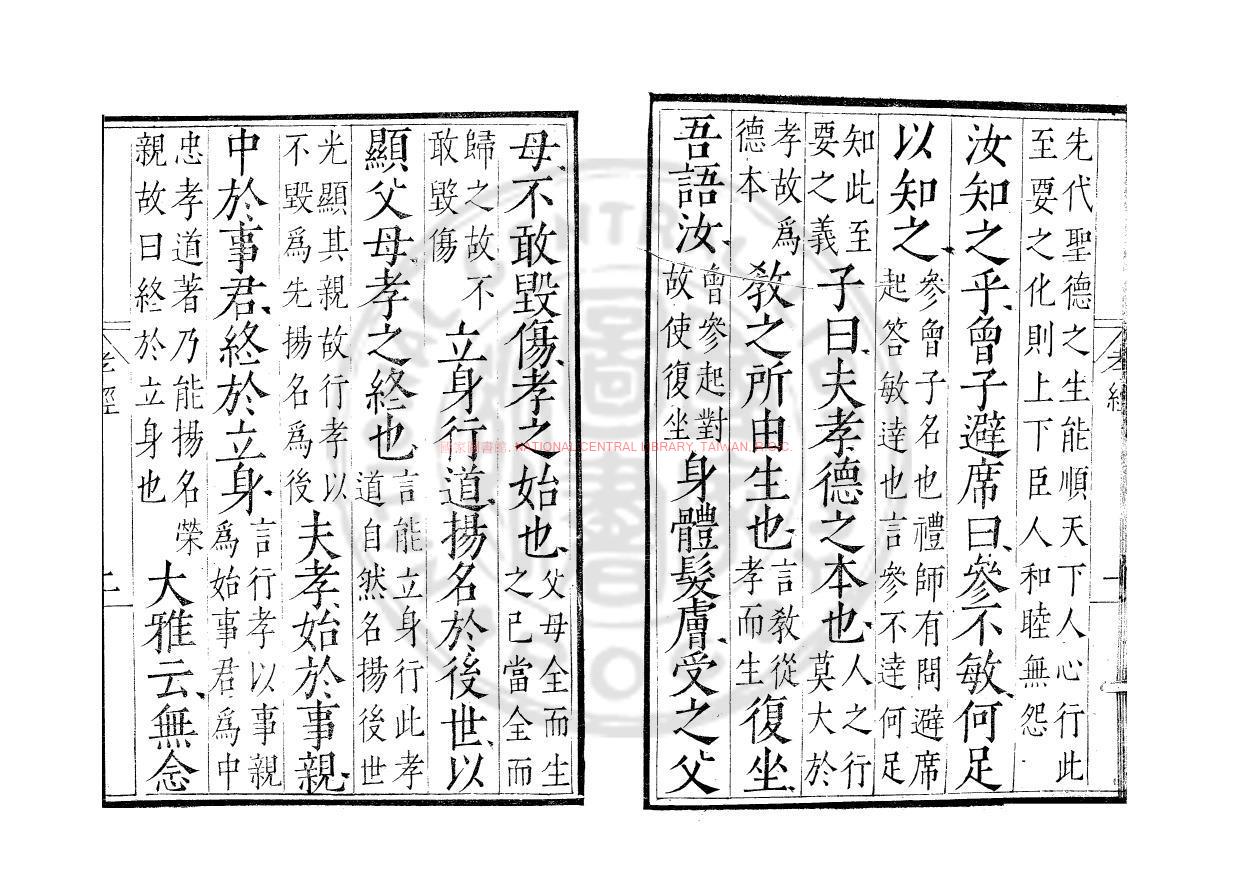 先代聖德之生能順天下人心行此
至要之化則上下臣人和睦無怨
汝知之乎曾子避席曰參不敏何足
以知之參曾子名也禮師有問避席
起答敏達也言參不達何足
知此至
要之義
子曰夫孝德之本也人之行
莫大於
孝故爲
德本
教之所由生也言教從
孝而生
復坐
吾語汝曾參起對
故使復坐
身體髮膚受之父
母不敢毀傷孝之始也父母全而生
之已當全而
歸之故不
敢毀傷
立身行道揚名於後世以
顯父母孝之終也言能立身行此孝
道自然名揚後世
光顯其親故行孝以
不毀爲先揚名爲後
夫孝始於事親
中於事君終於立身言行孝以事親
爲始事君爲中
忠孝道著乃能揚名榮
親故曰終於立身也
大雅云無念
孝經
國家圖書館, NATIONAL CENTRAL LIBRARY, TAIWAN, R.O.C.